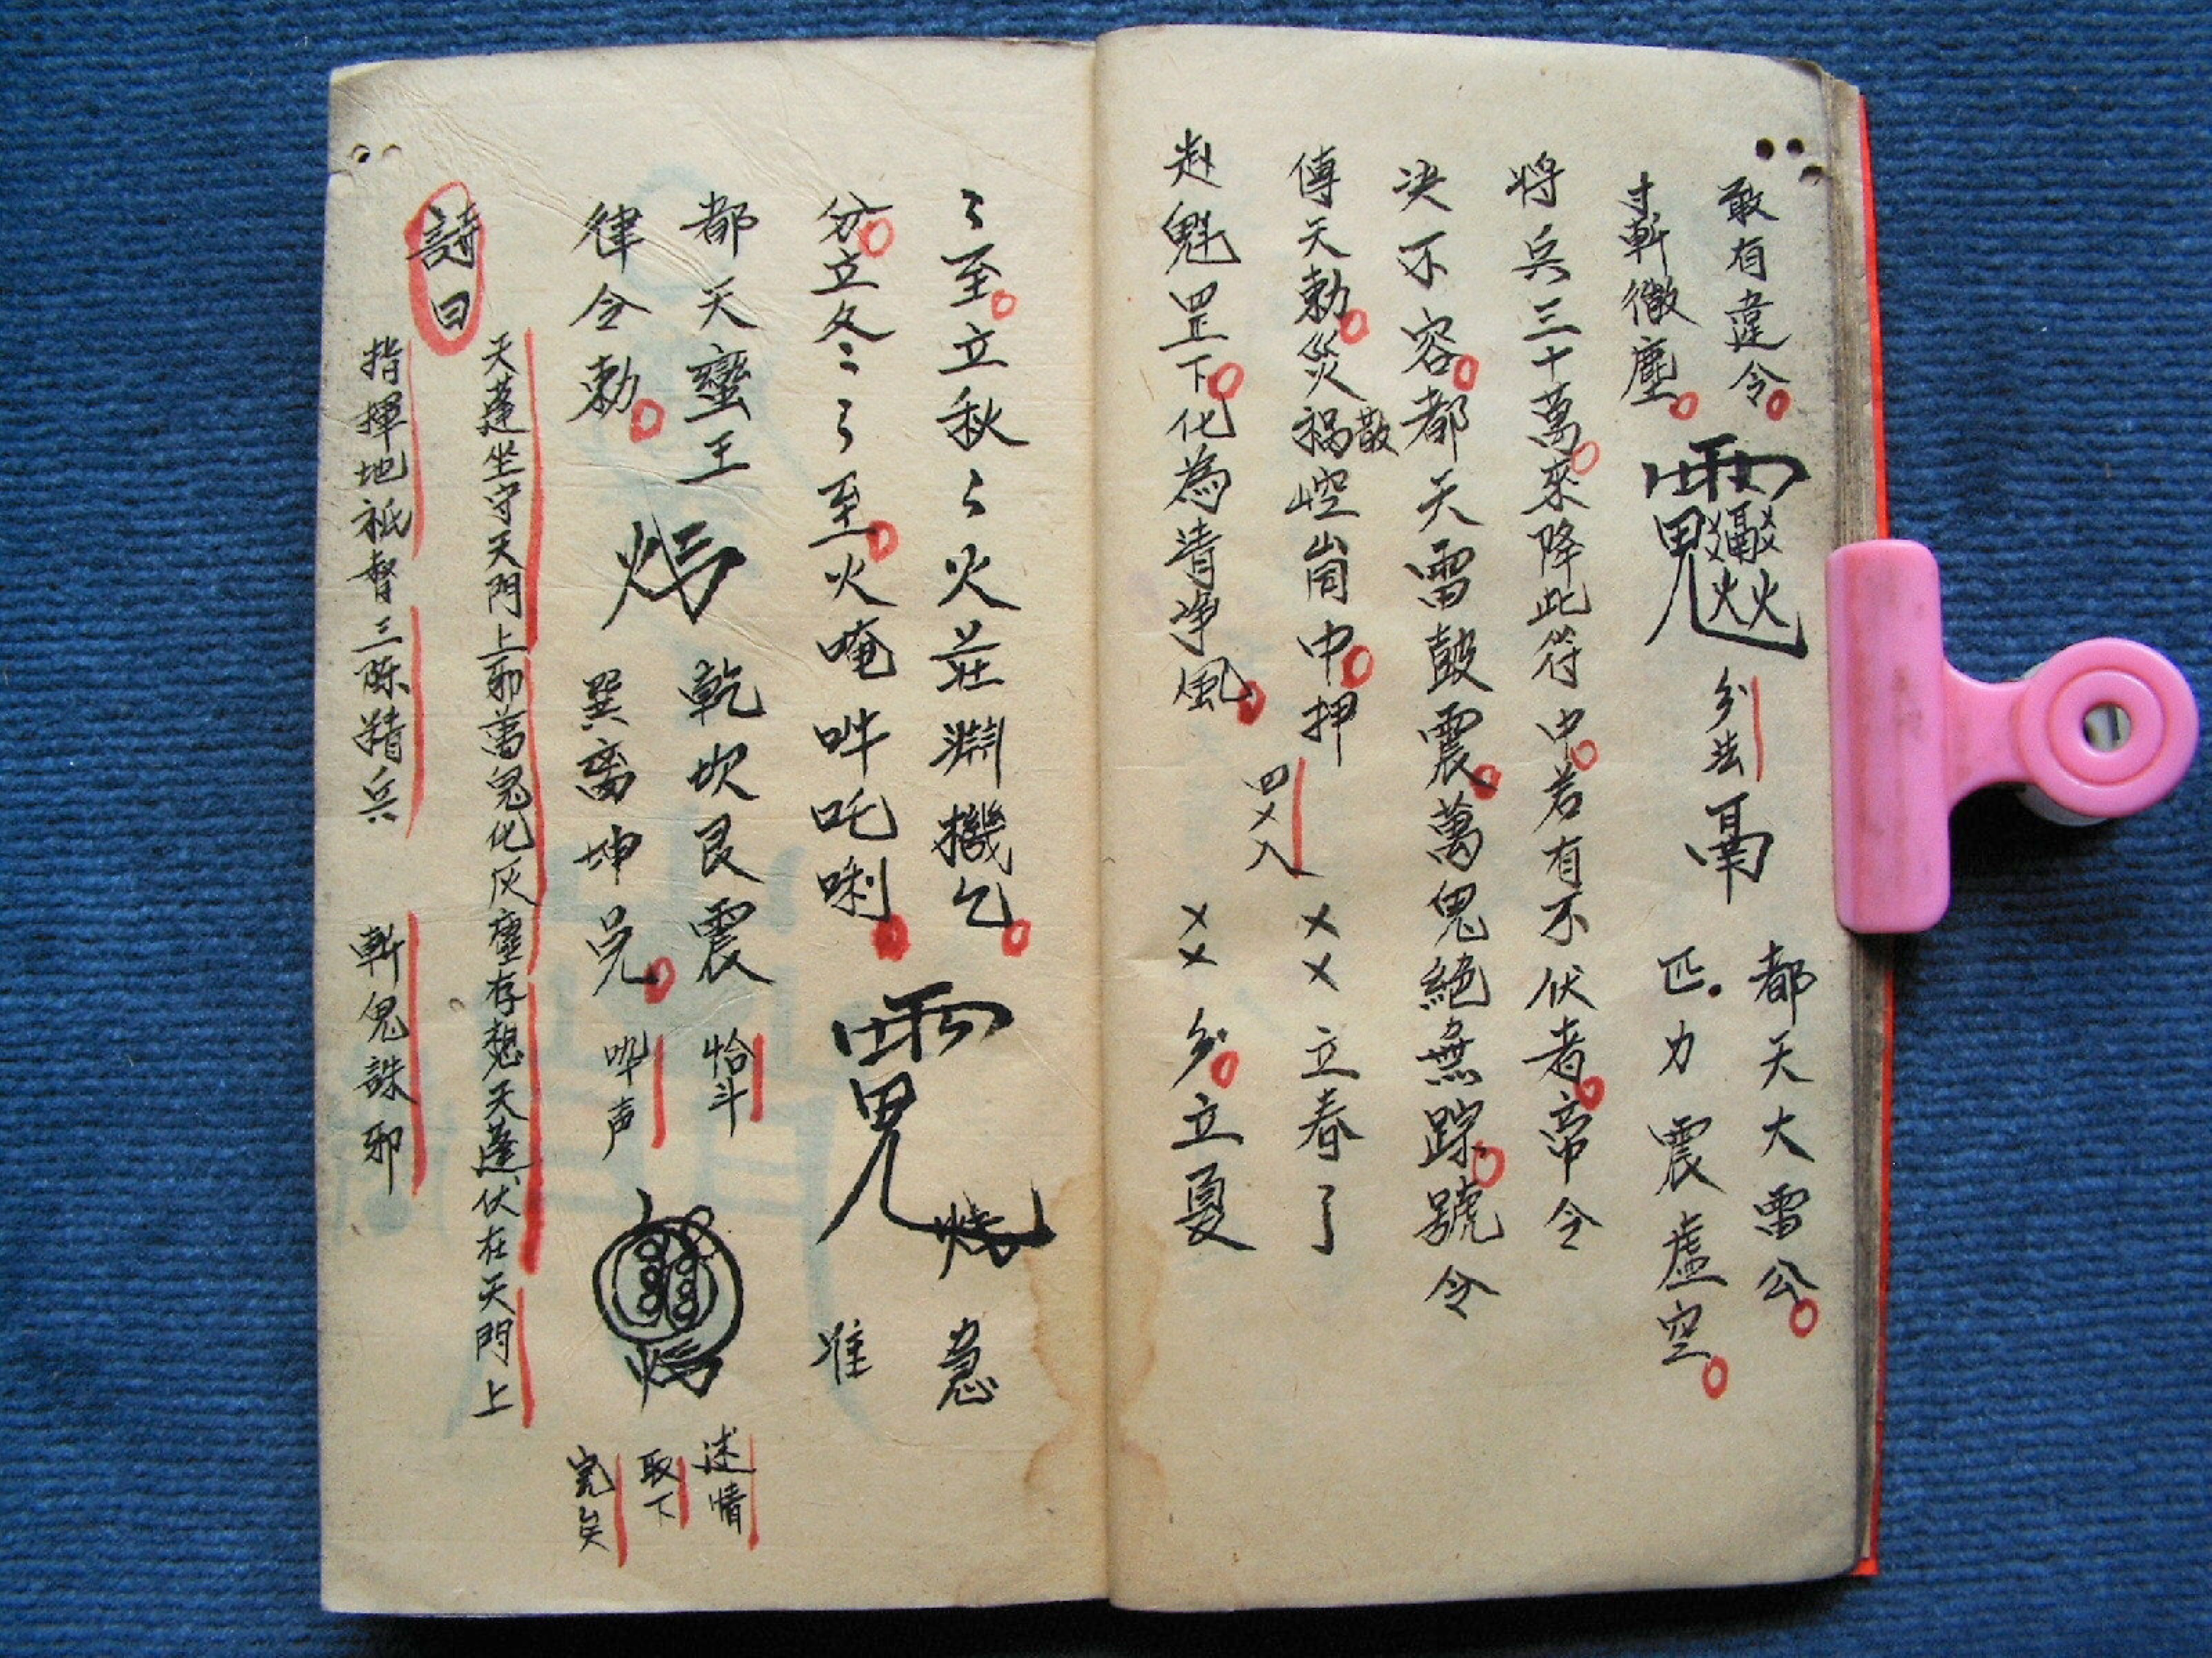 敢有違令
寸斬微塵
分法
都天大雷公
匹力震虛空
将兵三十萬來降此符中若有不伏者帝令
决不容都天雷鼓震萬鬼絕無踪號令
傳天勅災禍散崆崗中押
四乂入
乂乂立春了
赴魁罡下化為清净風
乂乂分立夏
〻至立秋〻火莊機乞
分立冬〻了至火唵吽吒唎
急
准
都天蠻王
律令勅
乾坎艮震
巽离坤兑
恰斗
吽声
迷情
取下
完矣
詩曰
天蓬坐守天門上邪萬鬼化灰塵存想天蓬伏在天門上
指揮地祇督三精兵 斬鬼誅邪